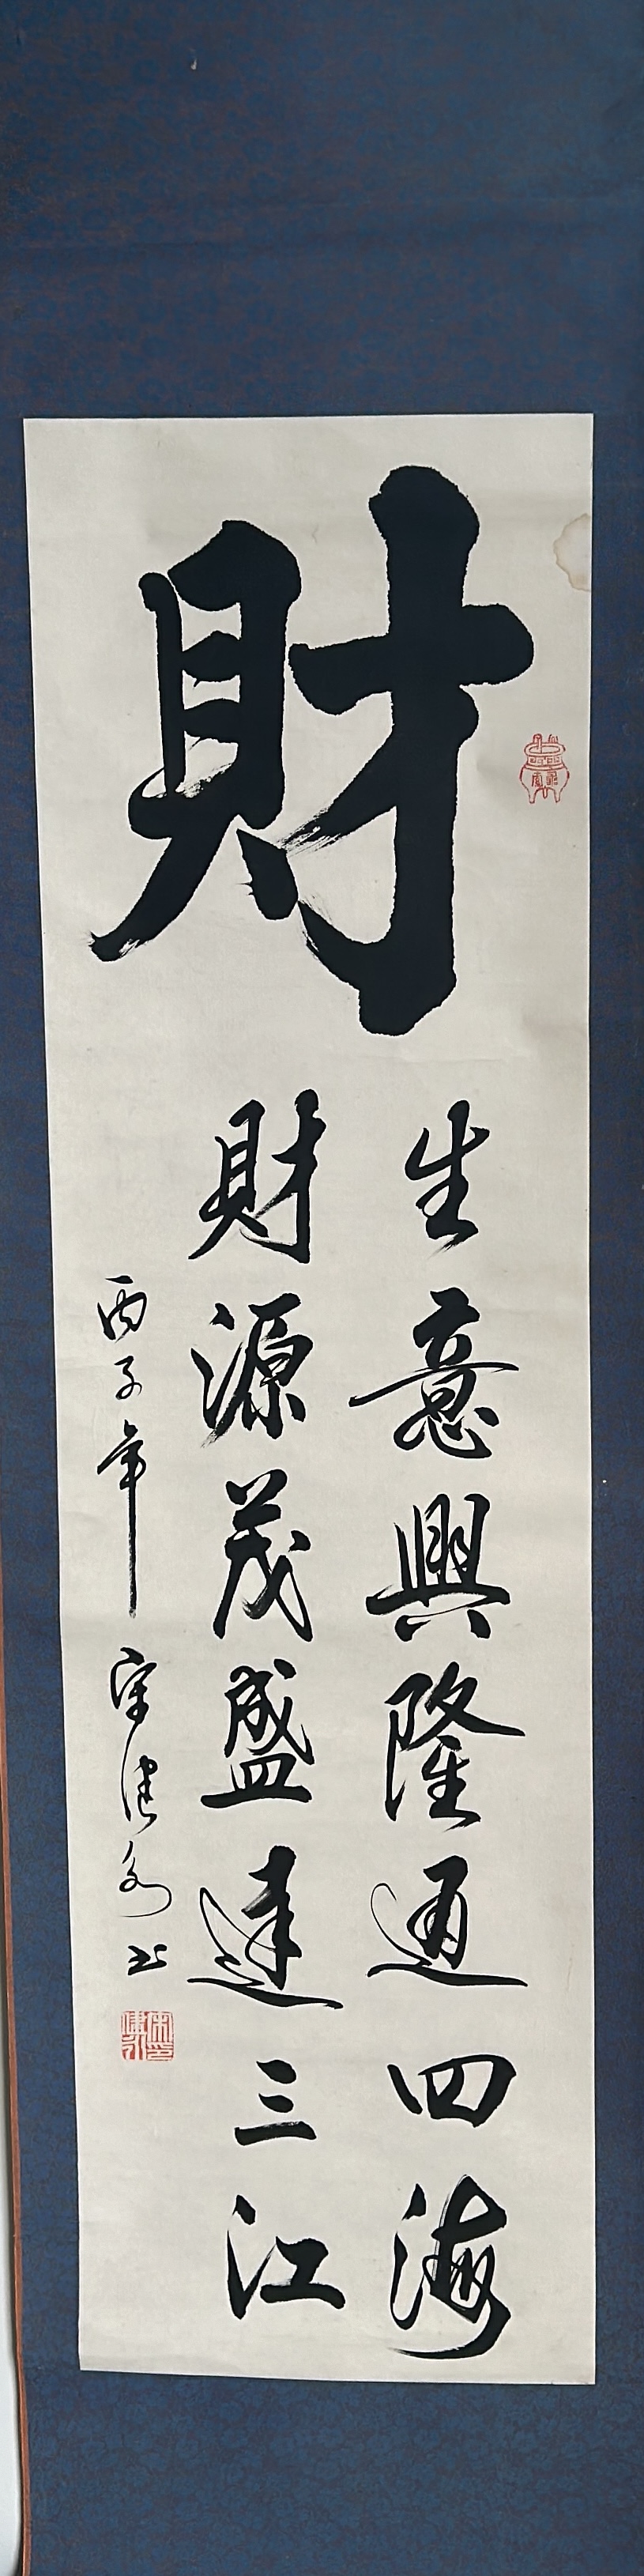 財
生意興隆通四海
財源茂盛達三江
丙子年 宋健永书